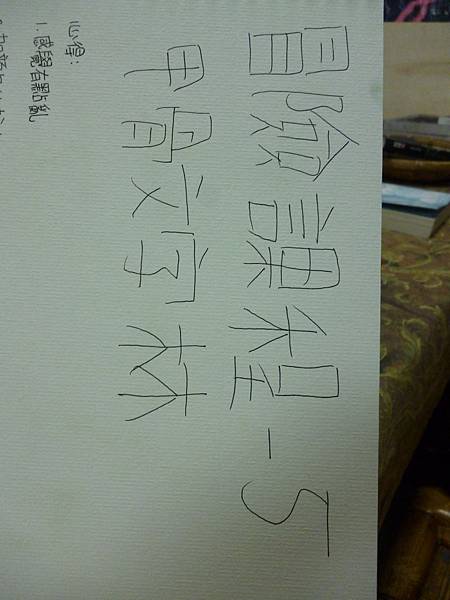 冒險課程-5
甲骨文字林
心得:
1.感覺有點亂